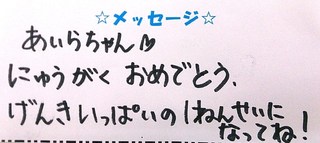 ☆メッセージ☆
あいらちゃん♡
にゅうがく おめでとう、
げんきいっぱいの1ねんせいに
なってね!